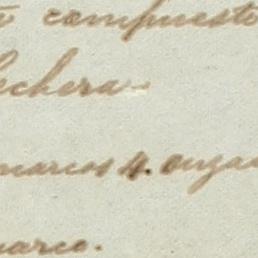 compuesto
lechera
marcos 4. onza
marco.